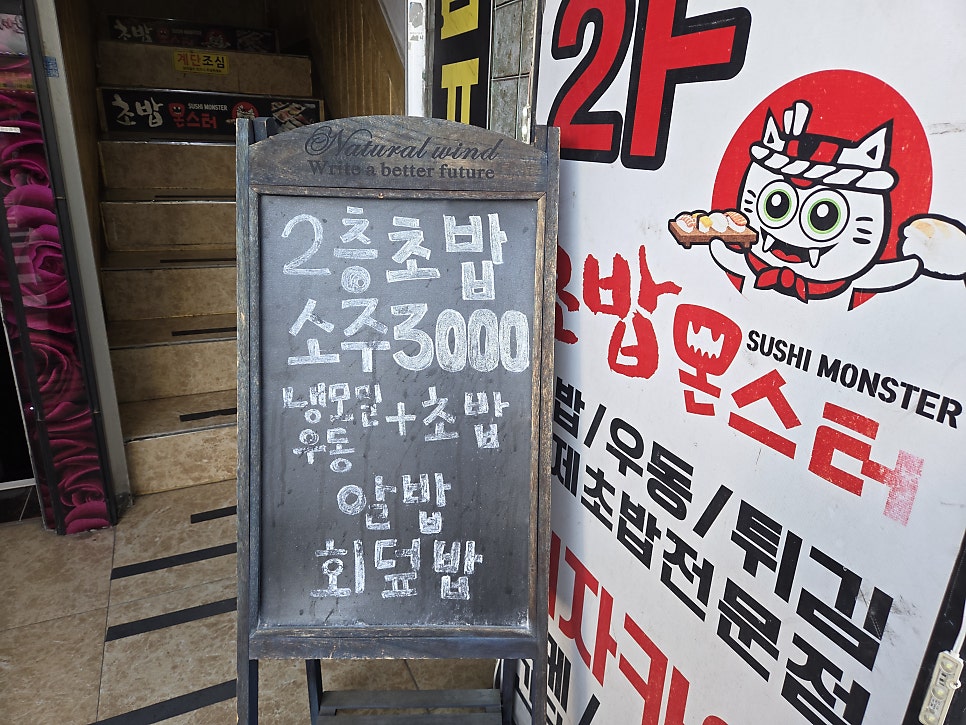 초밥
계단조심
초밥 몬스터 SUSHI MONSTER
Natural wind
Write a better future
2층초밥
소주3000
냉모밀
우동
+초밥
알밥
회덮밥
초밥몬스터
SUSHI MONSTER
밥/우동/튀김
제초밥전문점
자카